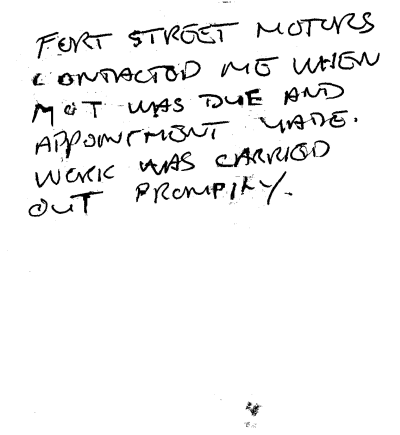 FORT STREET MOTORS
CONTACTED ME WHEN
MOT WAS DUE AND
APPOINTMENT MADE.
WORK WAS CARRIED
OUT PROMPTLY.